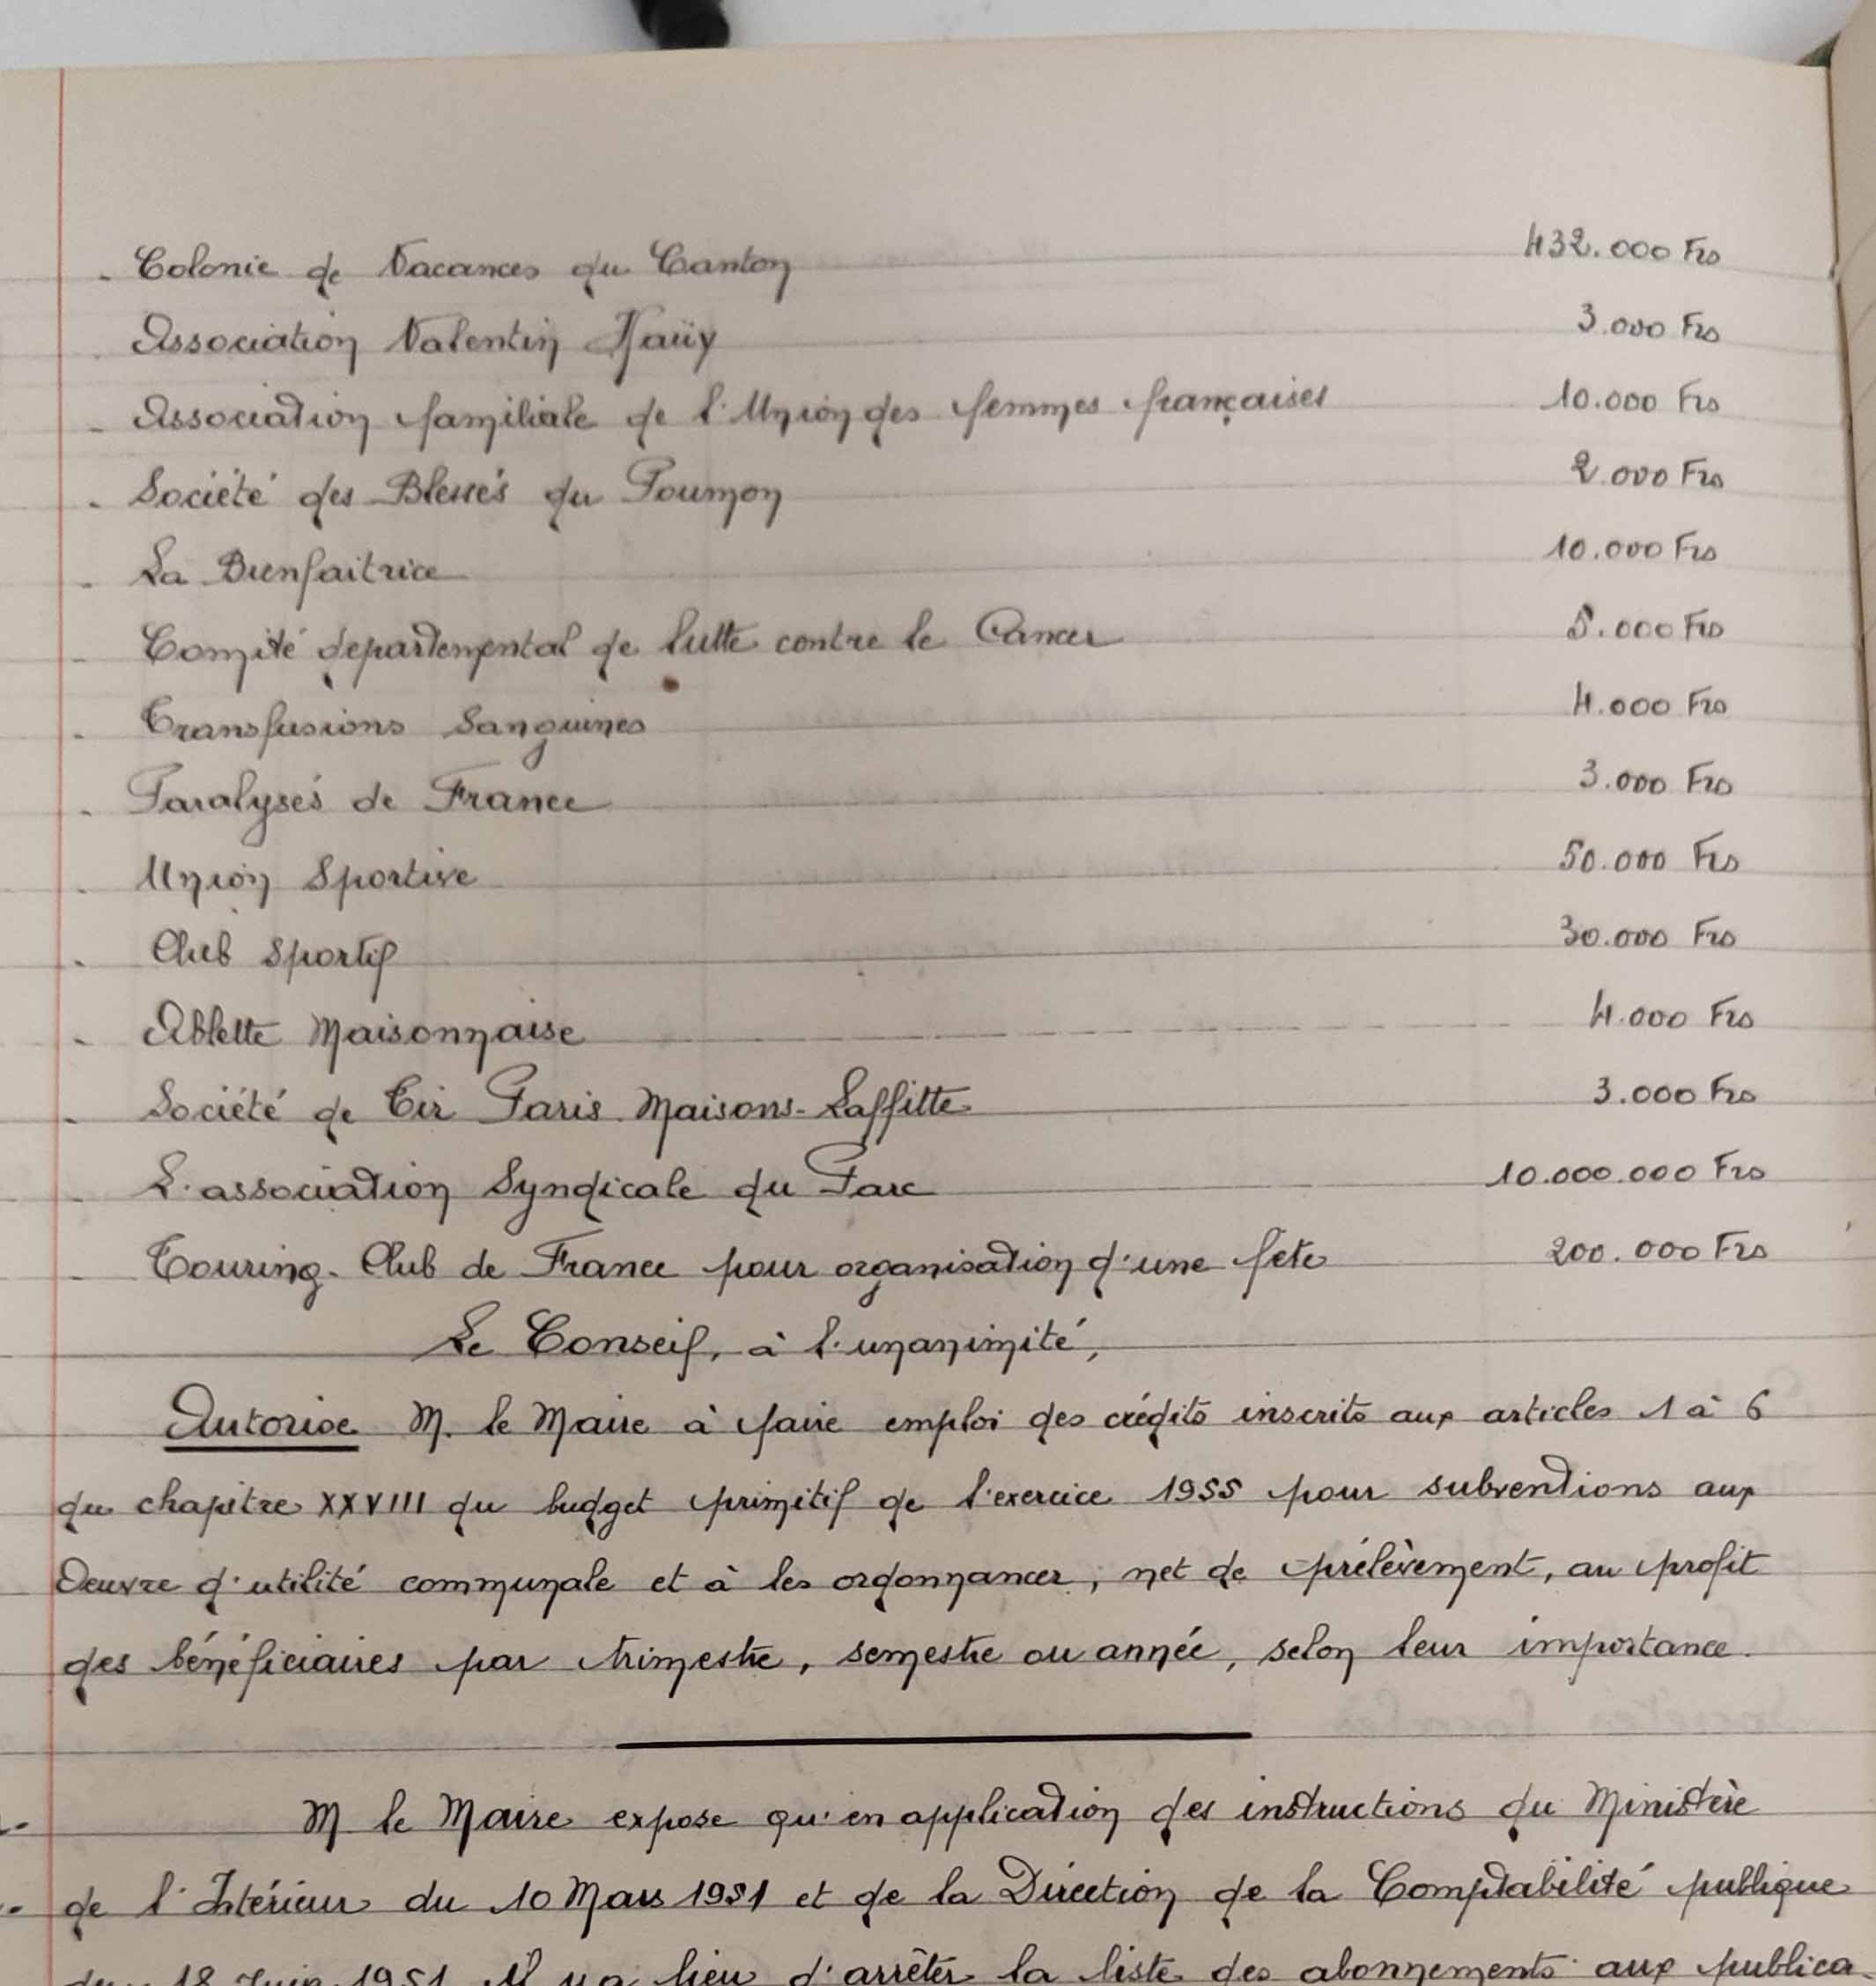 - Colonie de Vacances du Canton 432.000 Frs
- Association Valentin Haüy 3.000 Frs
- Association familiale de l'Union des femmes françaises 10.000 Frs
- Société des Blessés du Poumon 2.000 Frs
- La Bienfaitrice 10.000 Frs
- Comité departemental de lutte contre le Cancer 5.000 Frs
- Transfusions Sanguines 4.000 Frs
- Paralysés de France 3.000 Frs
- Union Sportive 50.000 Frs
- Club Sportif 30.000 Frs
- Ablette Maisonnaise 4.000 Frs
- Société de Tir Paris Maisons-Laffitte 3.000 Frs
- L'association Syndicale du Parc 10.000.000 Frs
- Touring-Club de France pour organisation d'une fête 200.000 Frs
Le Conseil, à l'unanimité,
Autorise M. le Maire à faire emploi des crédits inscrits aux articles 1 à 6
du chapitre XXVIII du budget primitif de l'exercice 1955 pour subventions aux
Oeuvre d'utilité communale et à les ordonnancer, net de prélèvement, au profit
des bénéficiaires par trimestre, semestre ou année, selon leur importance.
M le Maire expose qu'en application des instructions du Ministère
de l'Intérieur du 10 Mars 1951 et de la Direction de la Comptabilité publique
du 18 Juin 1951 il y a lieu d'arrêter la liste des abonnements aux publica